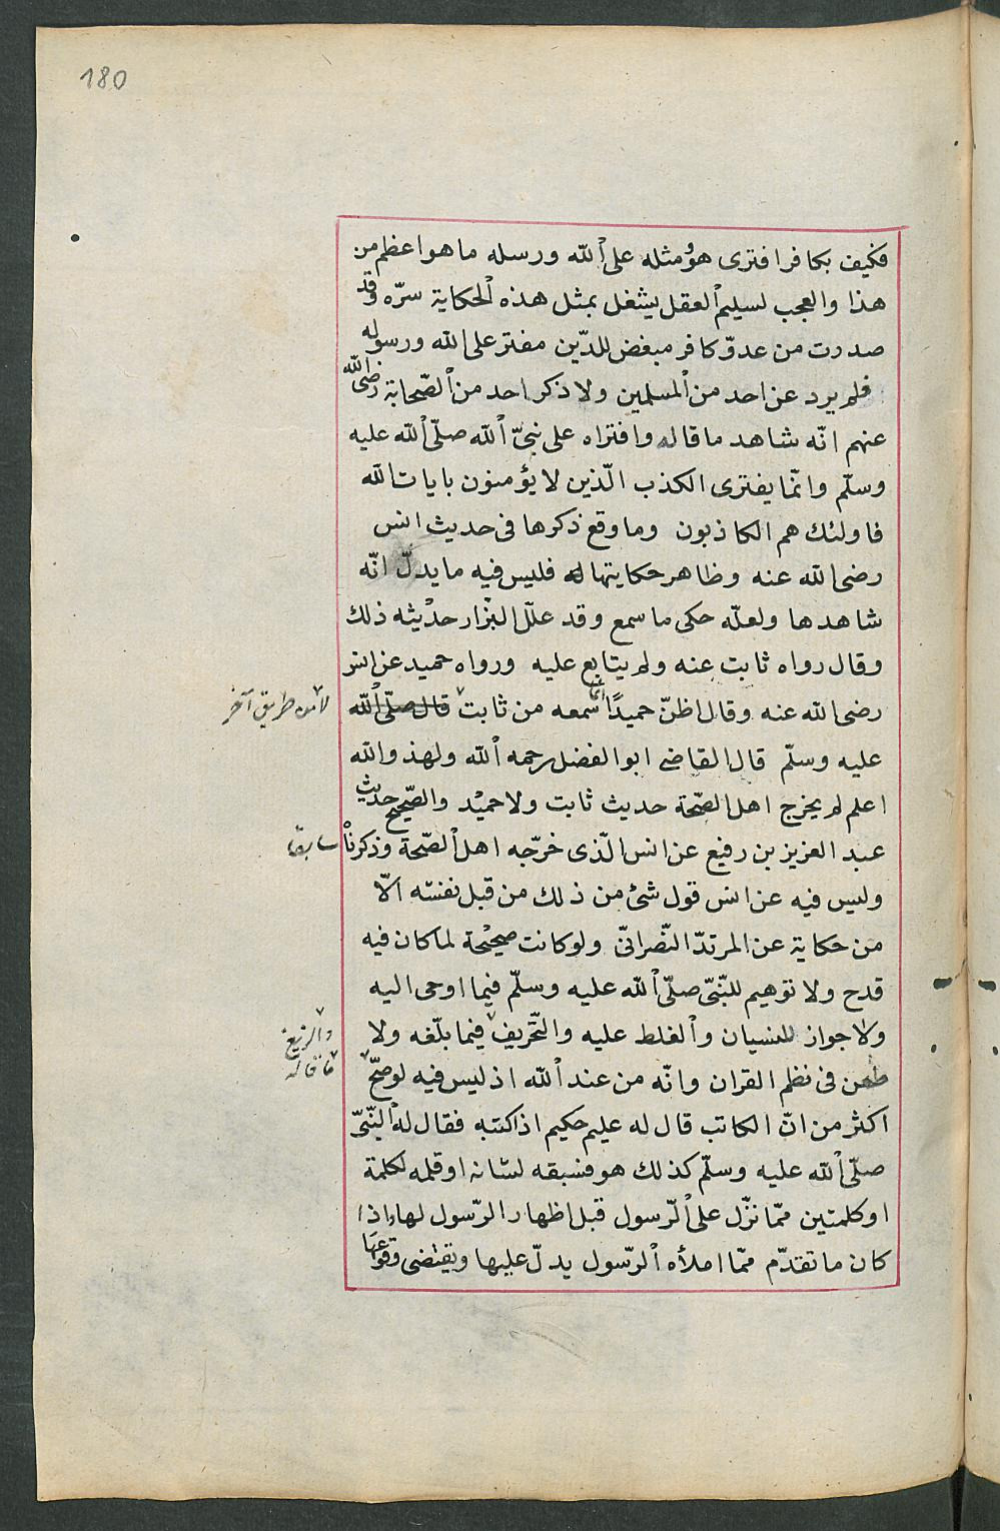 180
فكيف بكافر افترى هو ومثله على الله ورسله ما هو اعظم من
هذا والعجب لسليم العقل يشغل بمثل هذه الحكاية سرّه وقد
صدرت من عدوّ كافر مبغض للدّين مفتر على الله ورسوله
فلم يرد عن احد من المسلمين ولا ذكر احد من الصّحابة رضى الله
عنهم انّه شاهد ما قاله وافتراه على نبىّ الله صلّى الله عليه
وسلّم وانّما يفترى الكذب الّذين لا يؤمنون بايات الله
فاولئك هم الكاذبون وما وقع ذكرها فى حديث انس
رضى الله عنه وظاهر حكايتها له فليس فيه ما يدلّ انّه
شاهدها ولعلّه حكى ما سمع وقد علّل البزّار حديثه ذلك
وقال رواه ثابت عنه ولم يتابع عليه ورواه حميد عن انس
رضى الله عنه وقال اظنّ حميدًا انّما سمعه من ثابت قال صلّى الله
لا من طريق آخر
عليه وسلّم قال القاضى ابو الفضل رحمه الله ولهذ والله
اعلم لم يخرج اهل الصّحة حديث ثابت ولا حميد والصّحيح حديث
عبد العزيز بن رفيع عن انس الّذى خرّجه اهل الصّحة وذكرناه
سابقا
وليس فيه عن انس قول شئ من ذلك من قبل نفسه الّا
من حكاية عن المرتدّ النّصرانىّ ولو كانت صحيحة لما كان فيه
قدح ولا توهيم للنّبىّ صلّى الله عليه وسلّم فيما اوحى اليه
ولا جواز للنسيان والغلط عليه والتّحريف فيما بلّغه ولا
والزيغ
طعن فى نظم القران وانّه من عند الله اذ ليس فيه لو صحّ
ما قاله
اكثر من انّ الكاتب قال له عليم حكيم اذ اكتبه فقال له النّبىّ
صلّى الله عليه وسلّم كذلك هو فسبقه لسانه او قلمه لكلمة
او كلمتين ممّا نزّل على الرّسول قبل اظهار الرّسول لها اذا
كان ما تقدّم ممّا املأه الرّسول يدلّ عليها ويقتضى وقوعها